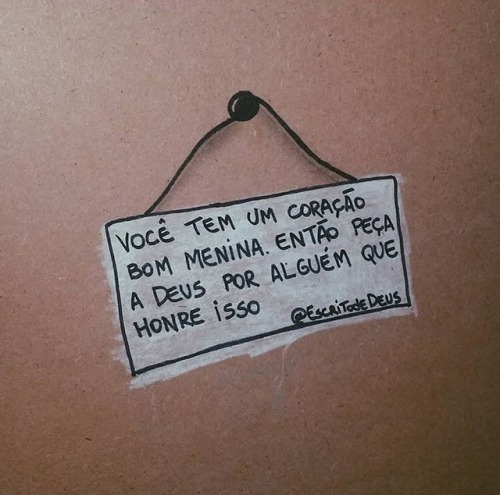 VOCÊ TEM UM CORAÇÃO
BOM MENINA. ENTÃO PEÇA
A DEUS POR ALGUÉM QUE
HONRE ISSO
@ESCRITOSDEDEUS